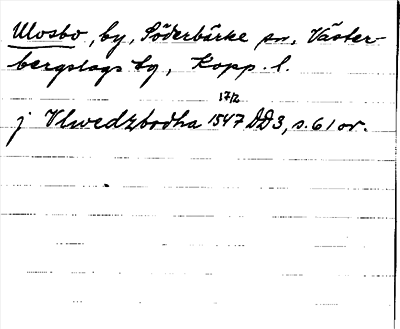 Ulvsbo, by, Söderbärke sn, Väster-
bergslags tg, Kopp. l.
17/12
j Vlwedzbodha 1547 DD3, s. 61 or.